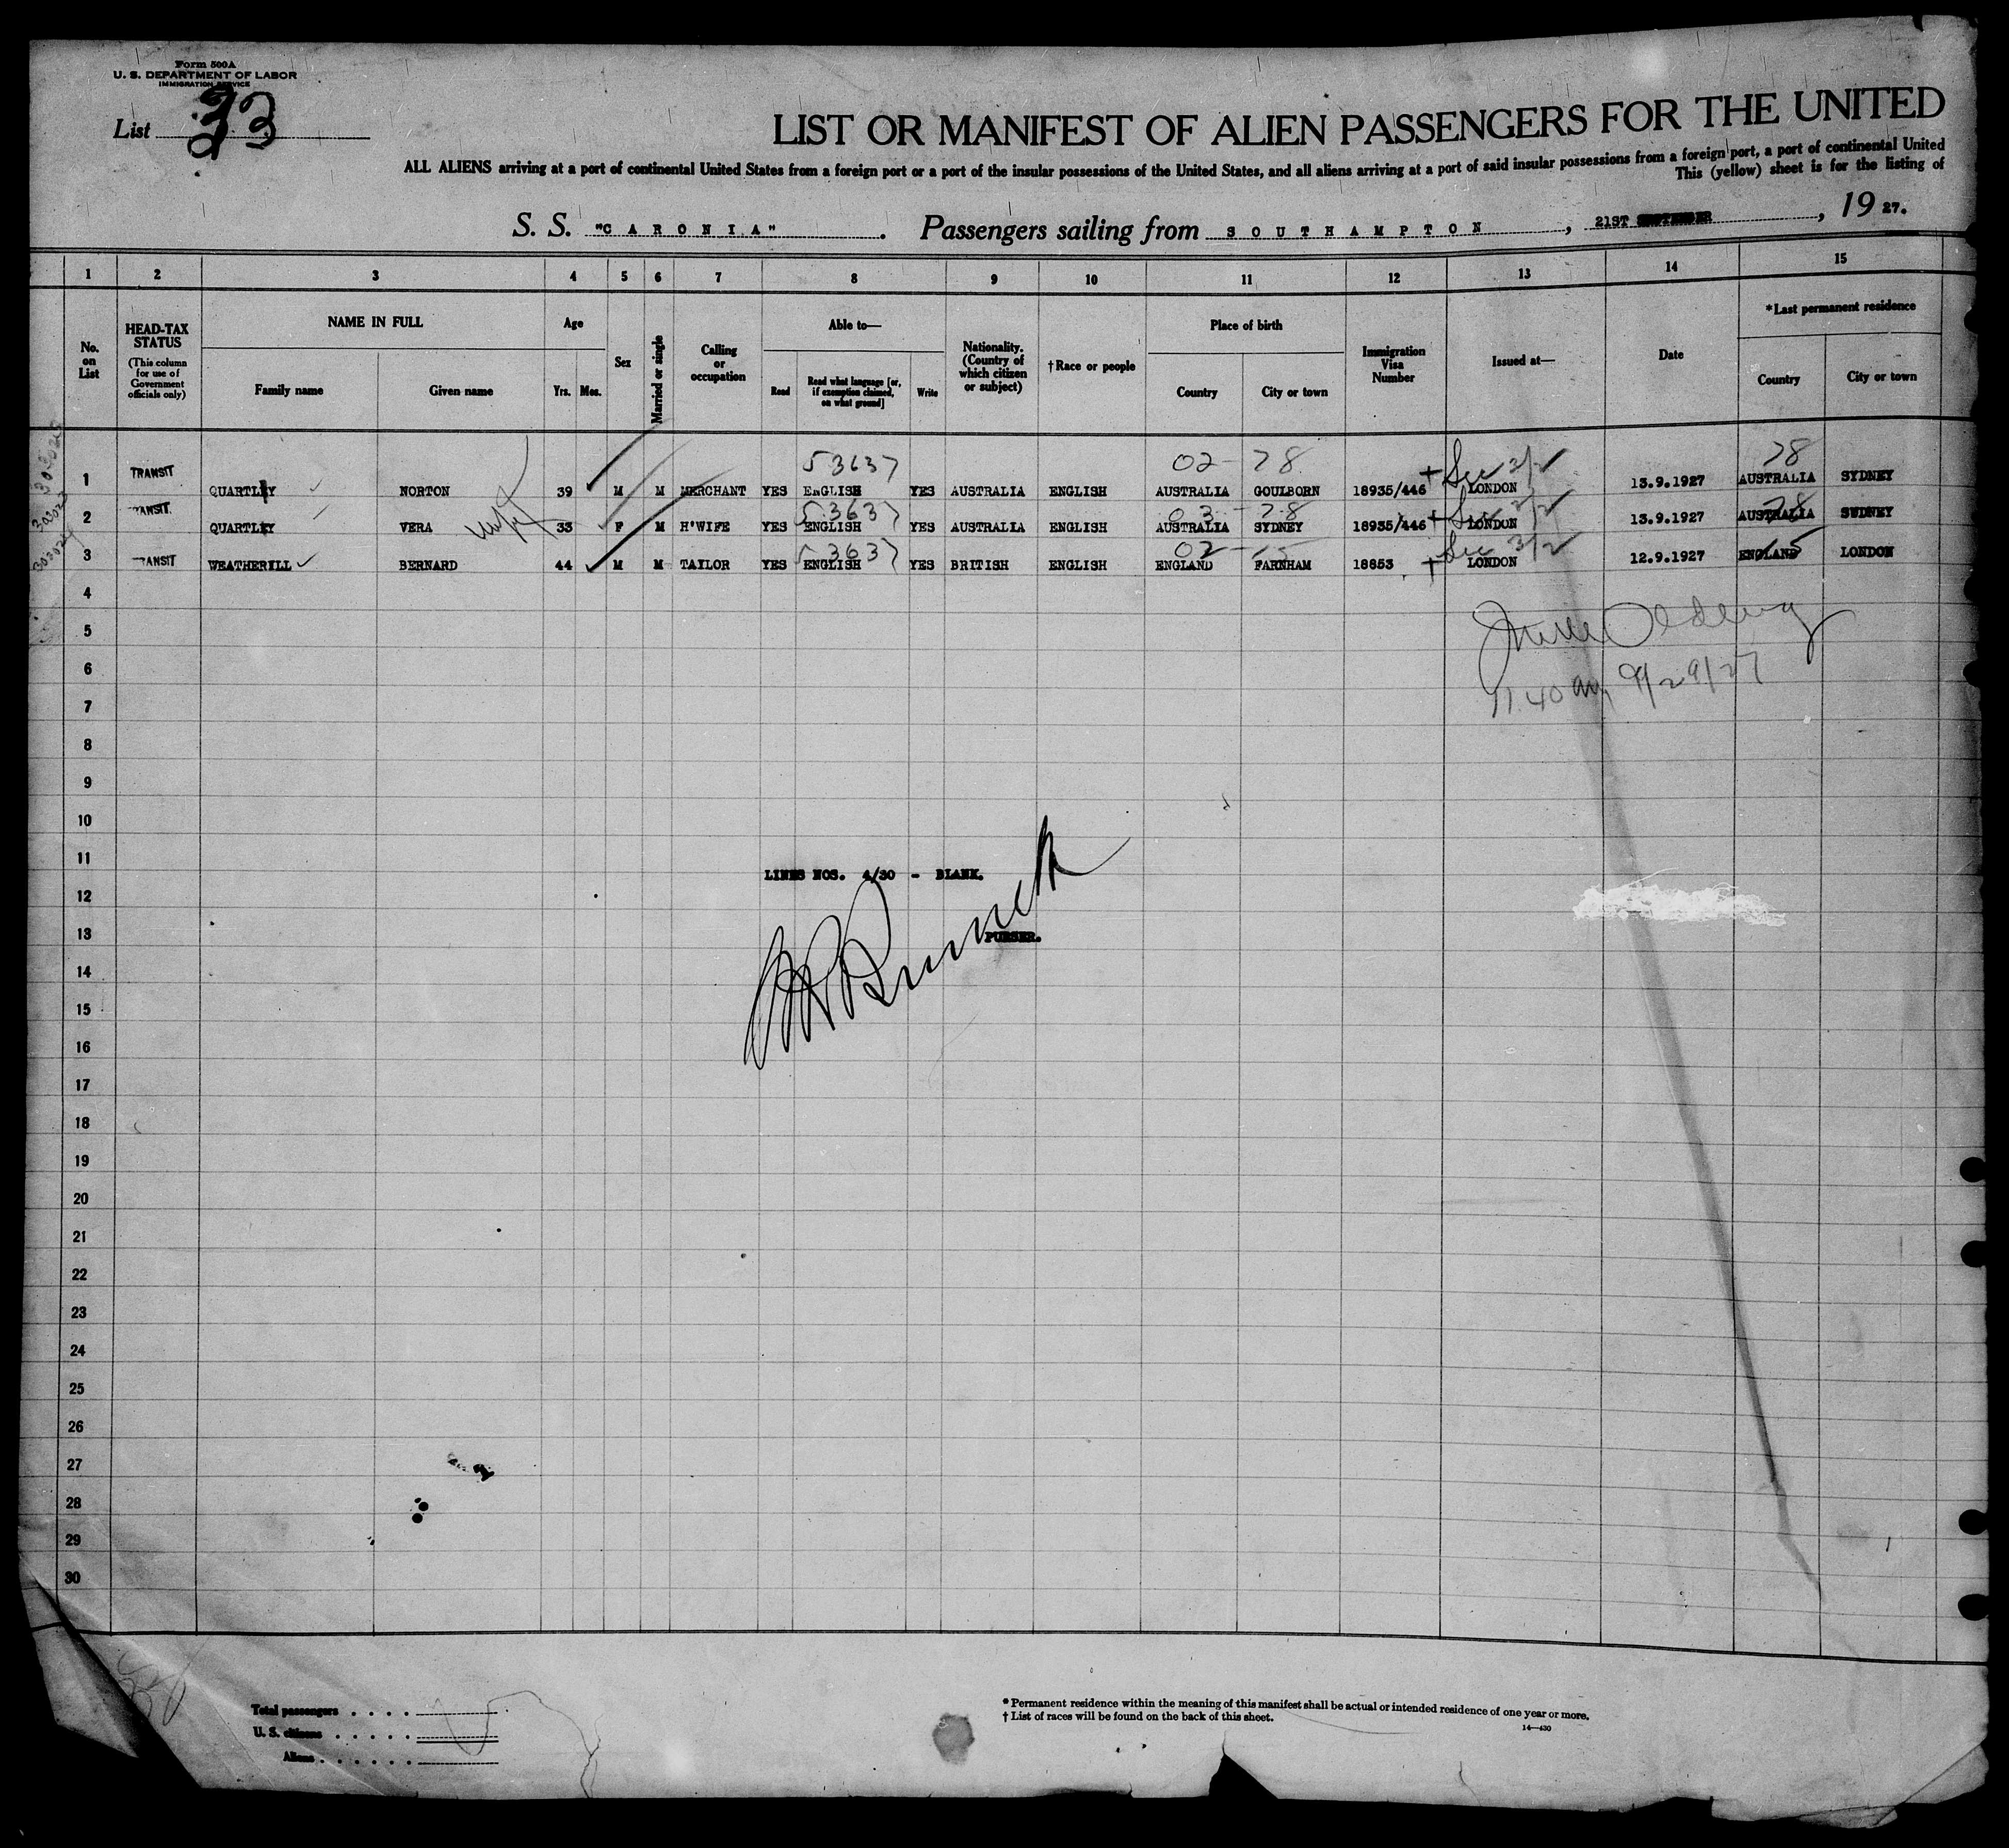 Form 500A
U. S. DEPARTMENT OF LABOR
IMMIGRATION SERVICE
List 33
LIST OR MANIFEST OF ALIEN PASSENGERS FOR THE UNITED
ALL ALIENS arriving at a port of continental United States from a foreign port or a port of the insular possessions of the United States, and all aliens arriving at a port of said insular possessions from a foreign port, a port of continental United
This (yellow) sheet is for the listing of
S. S. "CARONIA". Passengers sailing from SOUTHAMPTON, 21ST SEPTEMBER, 1927.
1 2 3 4 5 6 7 8 9 10 11 12 13 14 15
No. on List
HEAD-TAX STATUS (This column for use of Government officials only)
NAME IN FULL
Family name Given name
Age
Yrs. Mos.
Sex
Married or single
Calling or occupation
Able to—
Read Read what language [or, if exemption claimed, on what ground] Write
Nationality. (Country of which citizen or subject)
†Race or people
Place of birth
Country City or town
Immigration Visa Number
Issued at—
Date
*Last permanent residence
Country City or town
53637 02-78 Sec 3/2 78
1 TRANSIT QUARTLY NORTON 39 M M MERCHANT YES ENGLISH YES AUSTRALIA ENGLISH AUSTRALIA GOULBORN 18935/446 LONDON 13.9.1927 AUSTRALIA SYDNEY
53637 03-78 Sec 3/2 78
2 TRANSIT QUARTLY VERA 33 F M H'WIFE YES ENGLISH YES AUSTRALIA ENGLISH AUSTRALIA SYDNEY 18935/446 LONDON 13.9.1927 AUSTRALIA SYDNEY
53637 02-15 Sec 3/2 15
3 TRANSIT WEATHERILL BERNARD 44 M M TAILOR YES ENGLISH YES BRITISH ENGLISH ENGLAND FARNHAM 18853 LONDON 12.9.1927 ENGLAND LONDON
4
5
6
11.40 am 9/29/27
7
8
9
10
11
LINES NOS. 4/30 - BLANK.
12
13
PURSER.
14
15
16
17
18
19
20
21
22
23
24
25
26
27
28
29
30
Total passengers
U. S. citizens
Aliens
* Permanent residence within the meaning of this manifest shall be actual or intended residence of one year or more.
† List of races will be found on the back of this sheet.
14—430